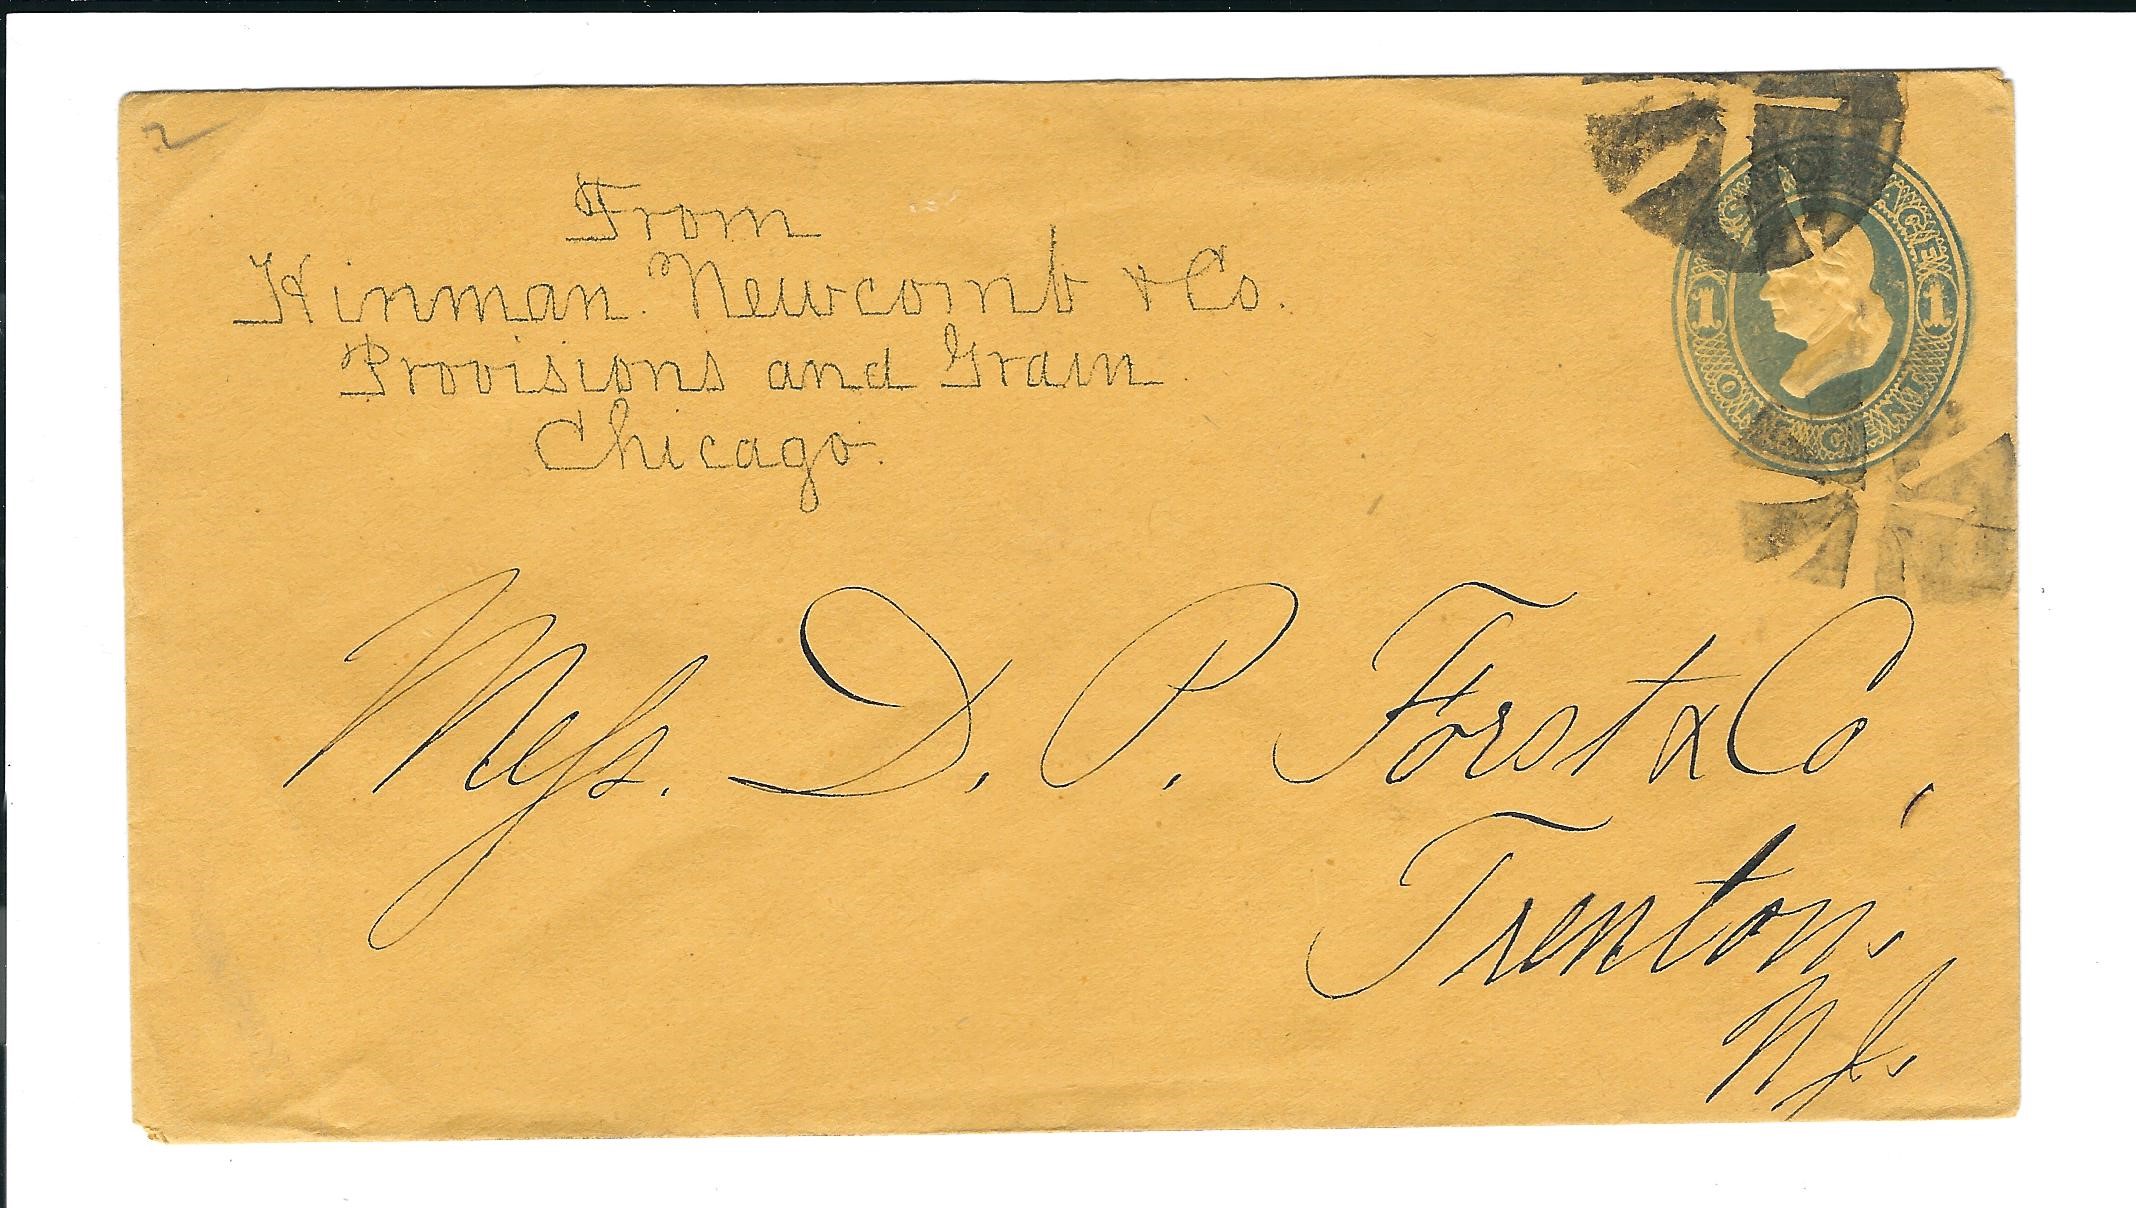 2
From
Hinman. Newcomb & Co.
Provisions and Grain
Chicago.
U.S. POSTAGE
1 1
ONE CENT
Mess. D. P. Forst & Co,
Trenton.
N.J.